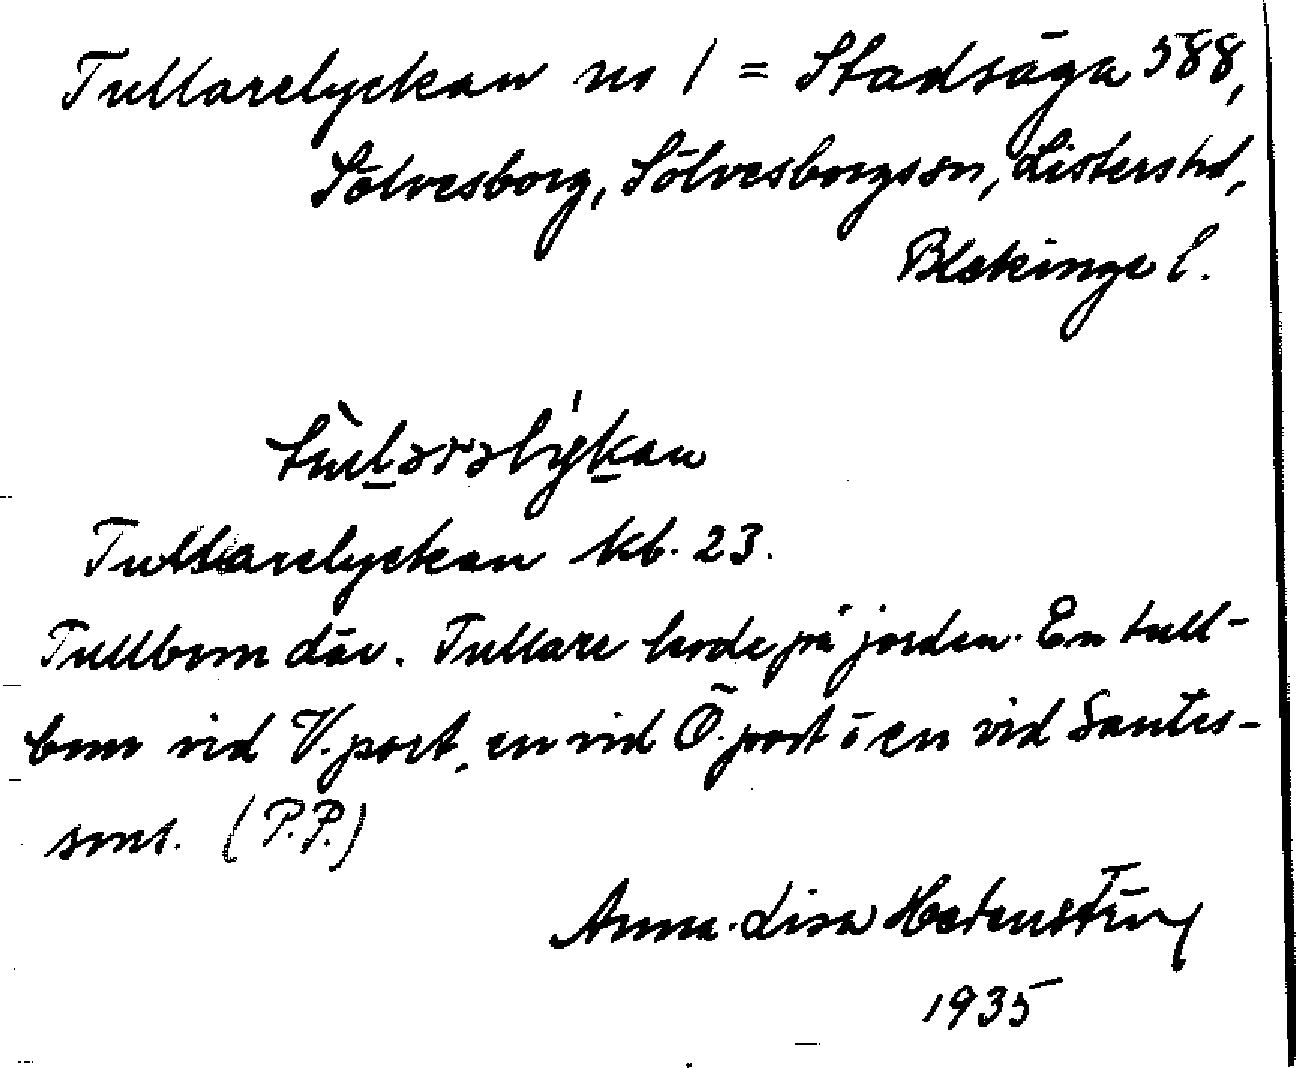 Tullarelyckan nr 1 = Stadsäga 588,
Sölvesborg, Sölvesborgs sn, Listers hd,
Blekinge l.
tùlarəlýkan
Tullarelyckan kb. 23.
Tullbom där. Tullare bode på jorden. En tull-
bom vid V. port, en vid Ö. port o en vid Santes-
sons. (P.P.)
Anna-Lisa
1935